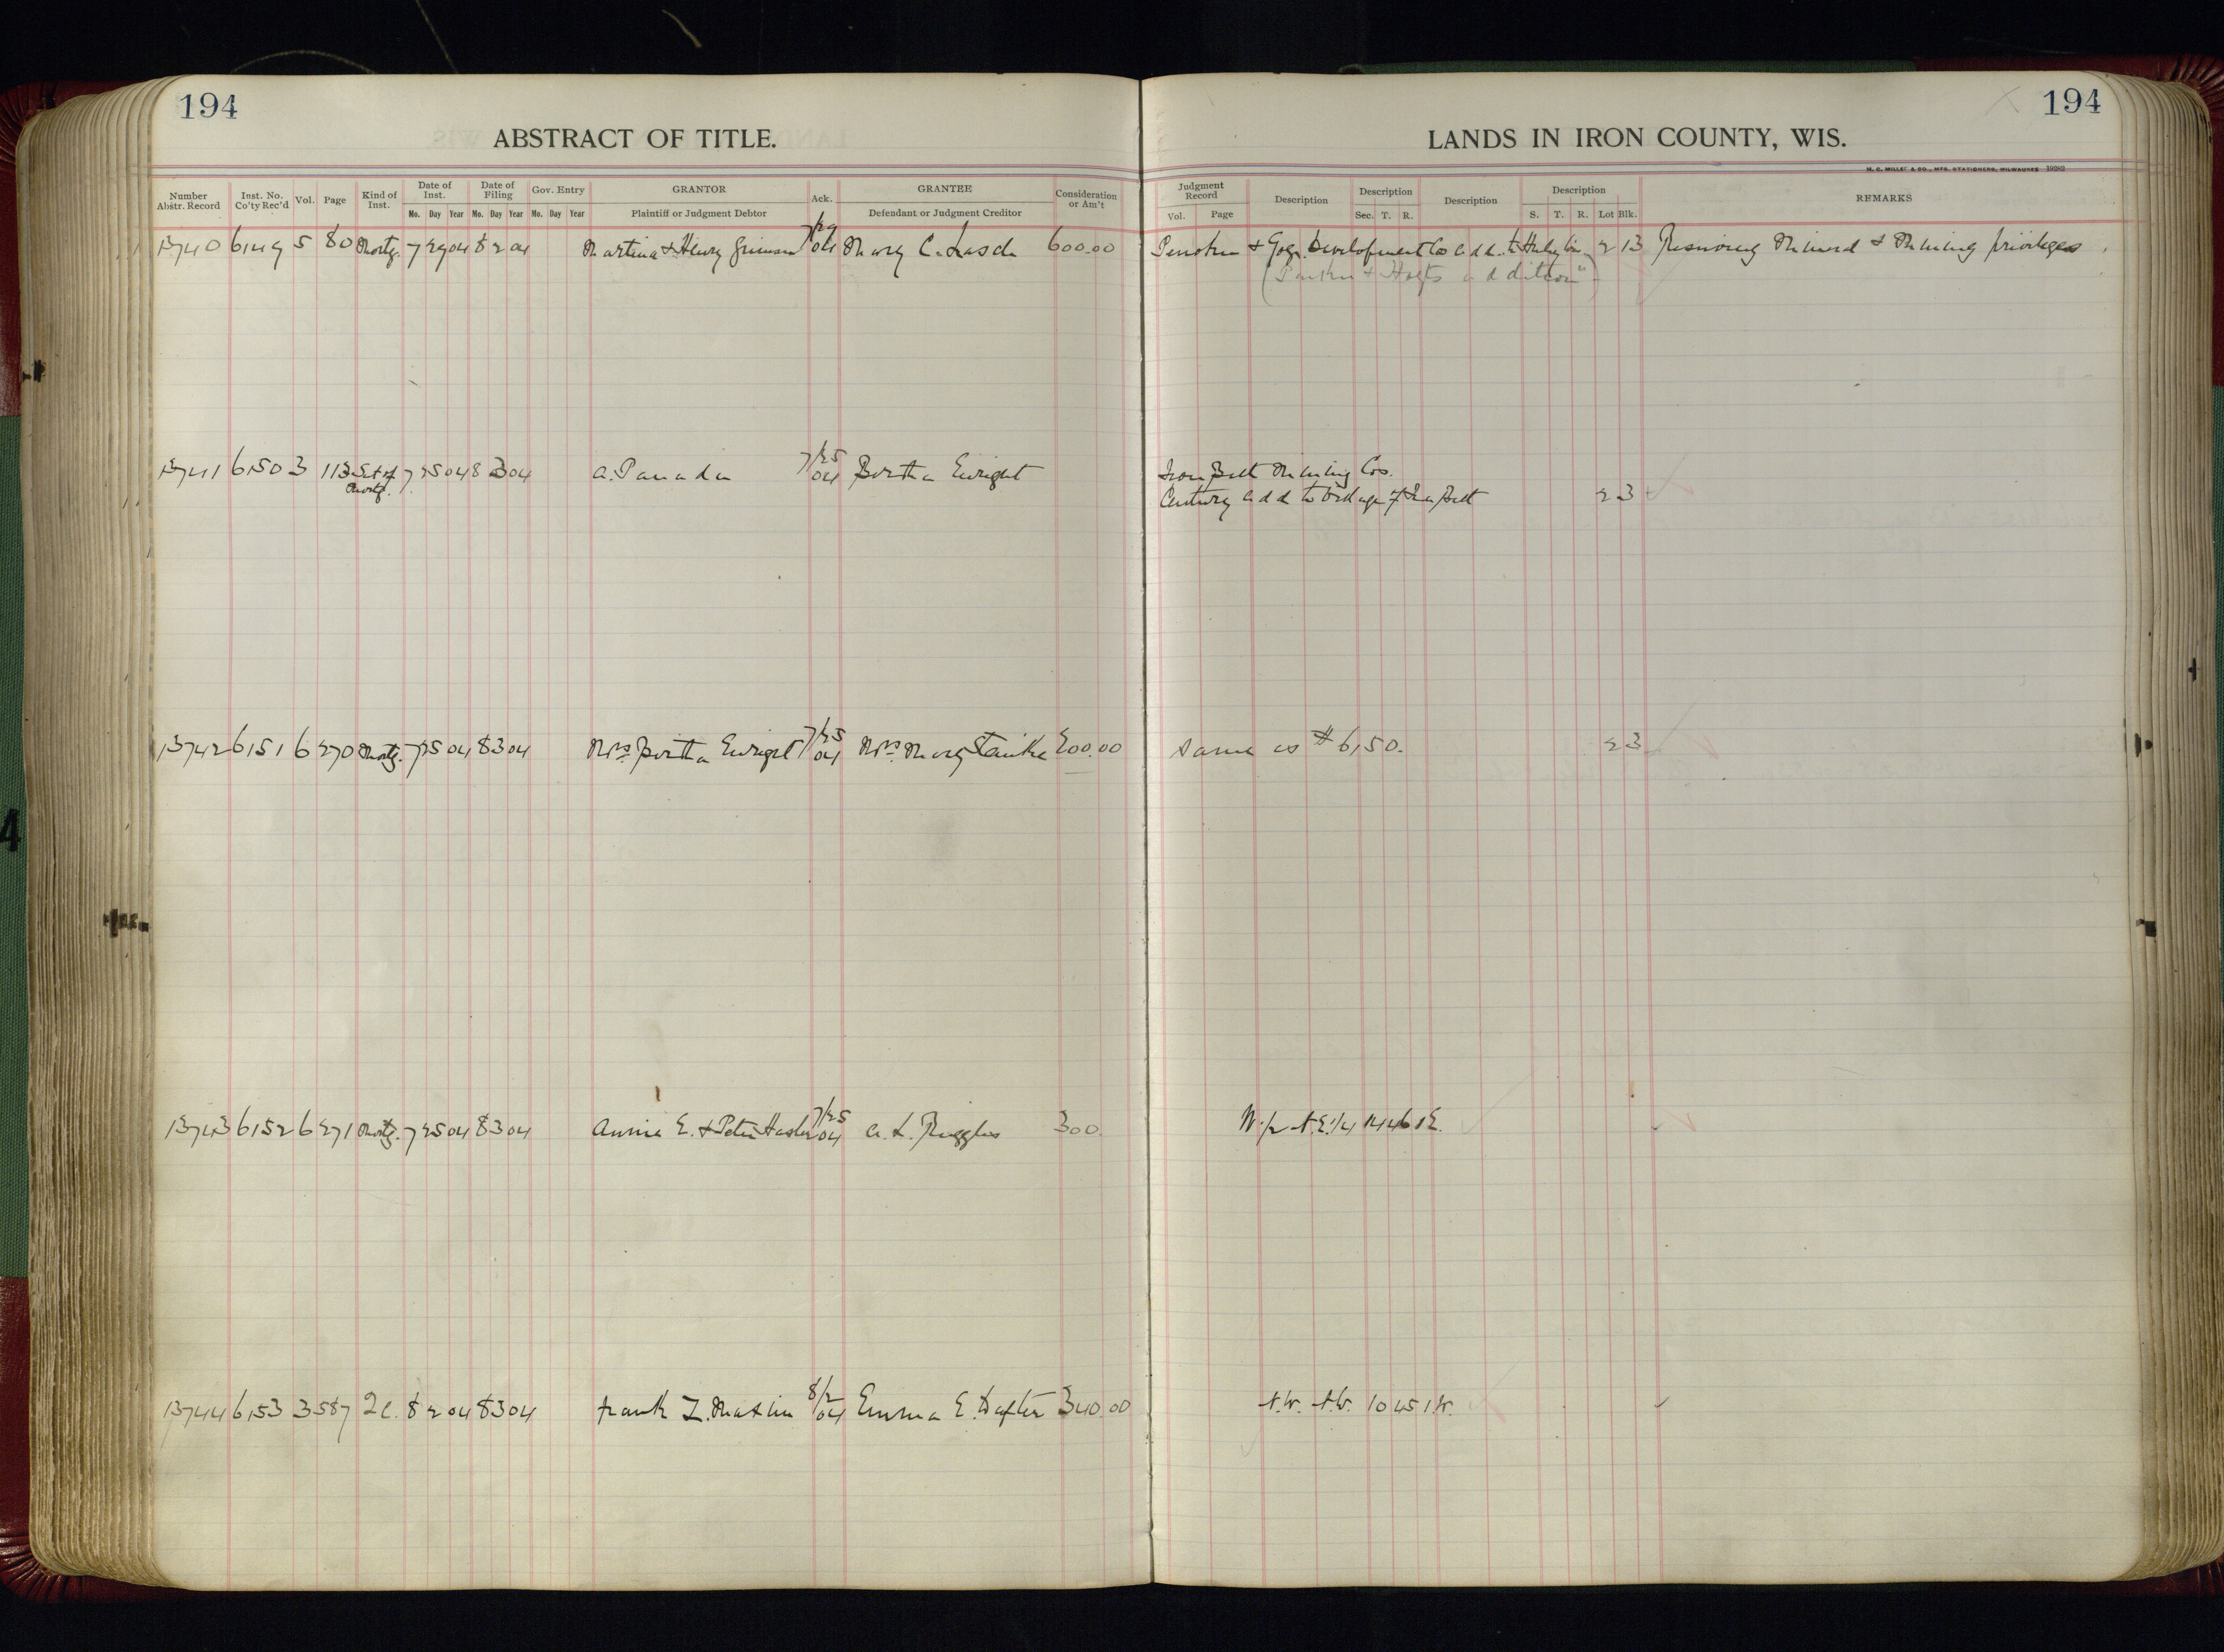 194
ABSTRACT OF TITLE.
194
LANDS IN IRON COUNTY, WIS.
H. C. MILLER & CO., MFG. STATIONERS, MILWAUKEE
Number Abstr. Record | Inst. No. Co'ty Rec'd | Vol. | Page | Kind of Inst. | Date of Inst. Mo. Day Year | Date of Filing Mo. Day Year | Gov. Entry Mo. Day Year | GRANTOR Plaintiff or Judgment Debtor | Ack. | GRANTEE Defendant or Judgment Creditor | Consideration or Am't | Judgment Record Vol. Page | Description | Description Sec. T. R. | Description | Description S. T. R. Lot Blk. | REMARKS
13740 6149 5 80 Mortg. 7 29 04 8 2 04 Martina & Henry 7/29 04 Mary C. Lasch 600.00 & Gog. Development Co add. to Hurley Wis 2 13 Reserving Mineral & Mining privileges
addition")
13741 6150 3 113 Sat of 7 25 04 8 3 04 A. Panada 7/25 04 Bertha Enright Iron Belt Mining Cos.
Mortg. Century add to Village of Iron Belt 2 3
13742 6151 6 270 Mortg. 7 25 04 8 3 04 Mrs Bertha Enright 7/25 04 Mrs Mary 200.00 Same as # 6150. 2 3
13743 6152 6 271 Mortg. 7 25 04 8 3 04 Annie E. & Peter 7/25 04 A. L. Ruggles 300. N. 1/2 N.E. 1/4 14 46 1 E.
13744 6153 3 587 2c. 8 2 04 8 3 04 Frank L. 8/2 04 Emma E. Dafter 340.00 N.W. N.W. 10 45 1 W.
4